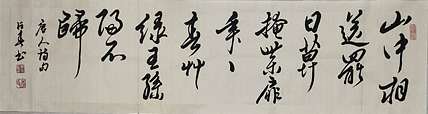 山中相
送罷
日暮
掩柴扉
年々
春艸
緑王孫
歸不
歸
唐人詩句
書